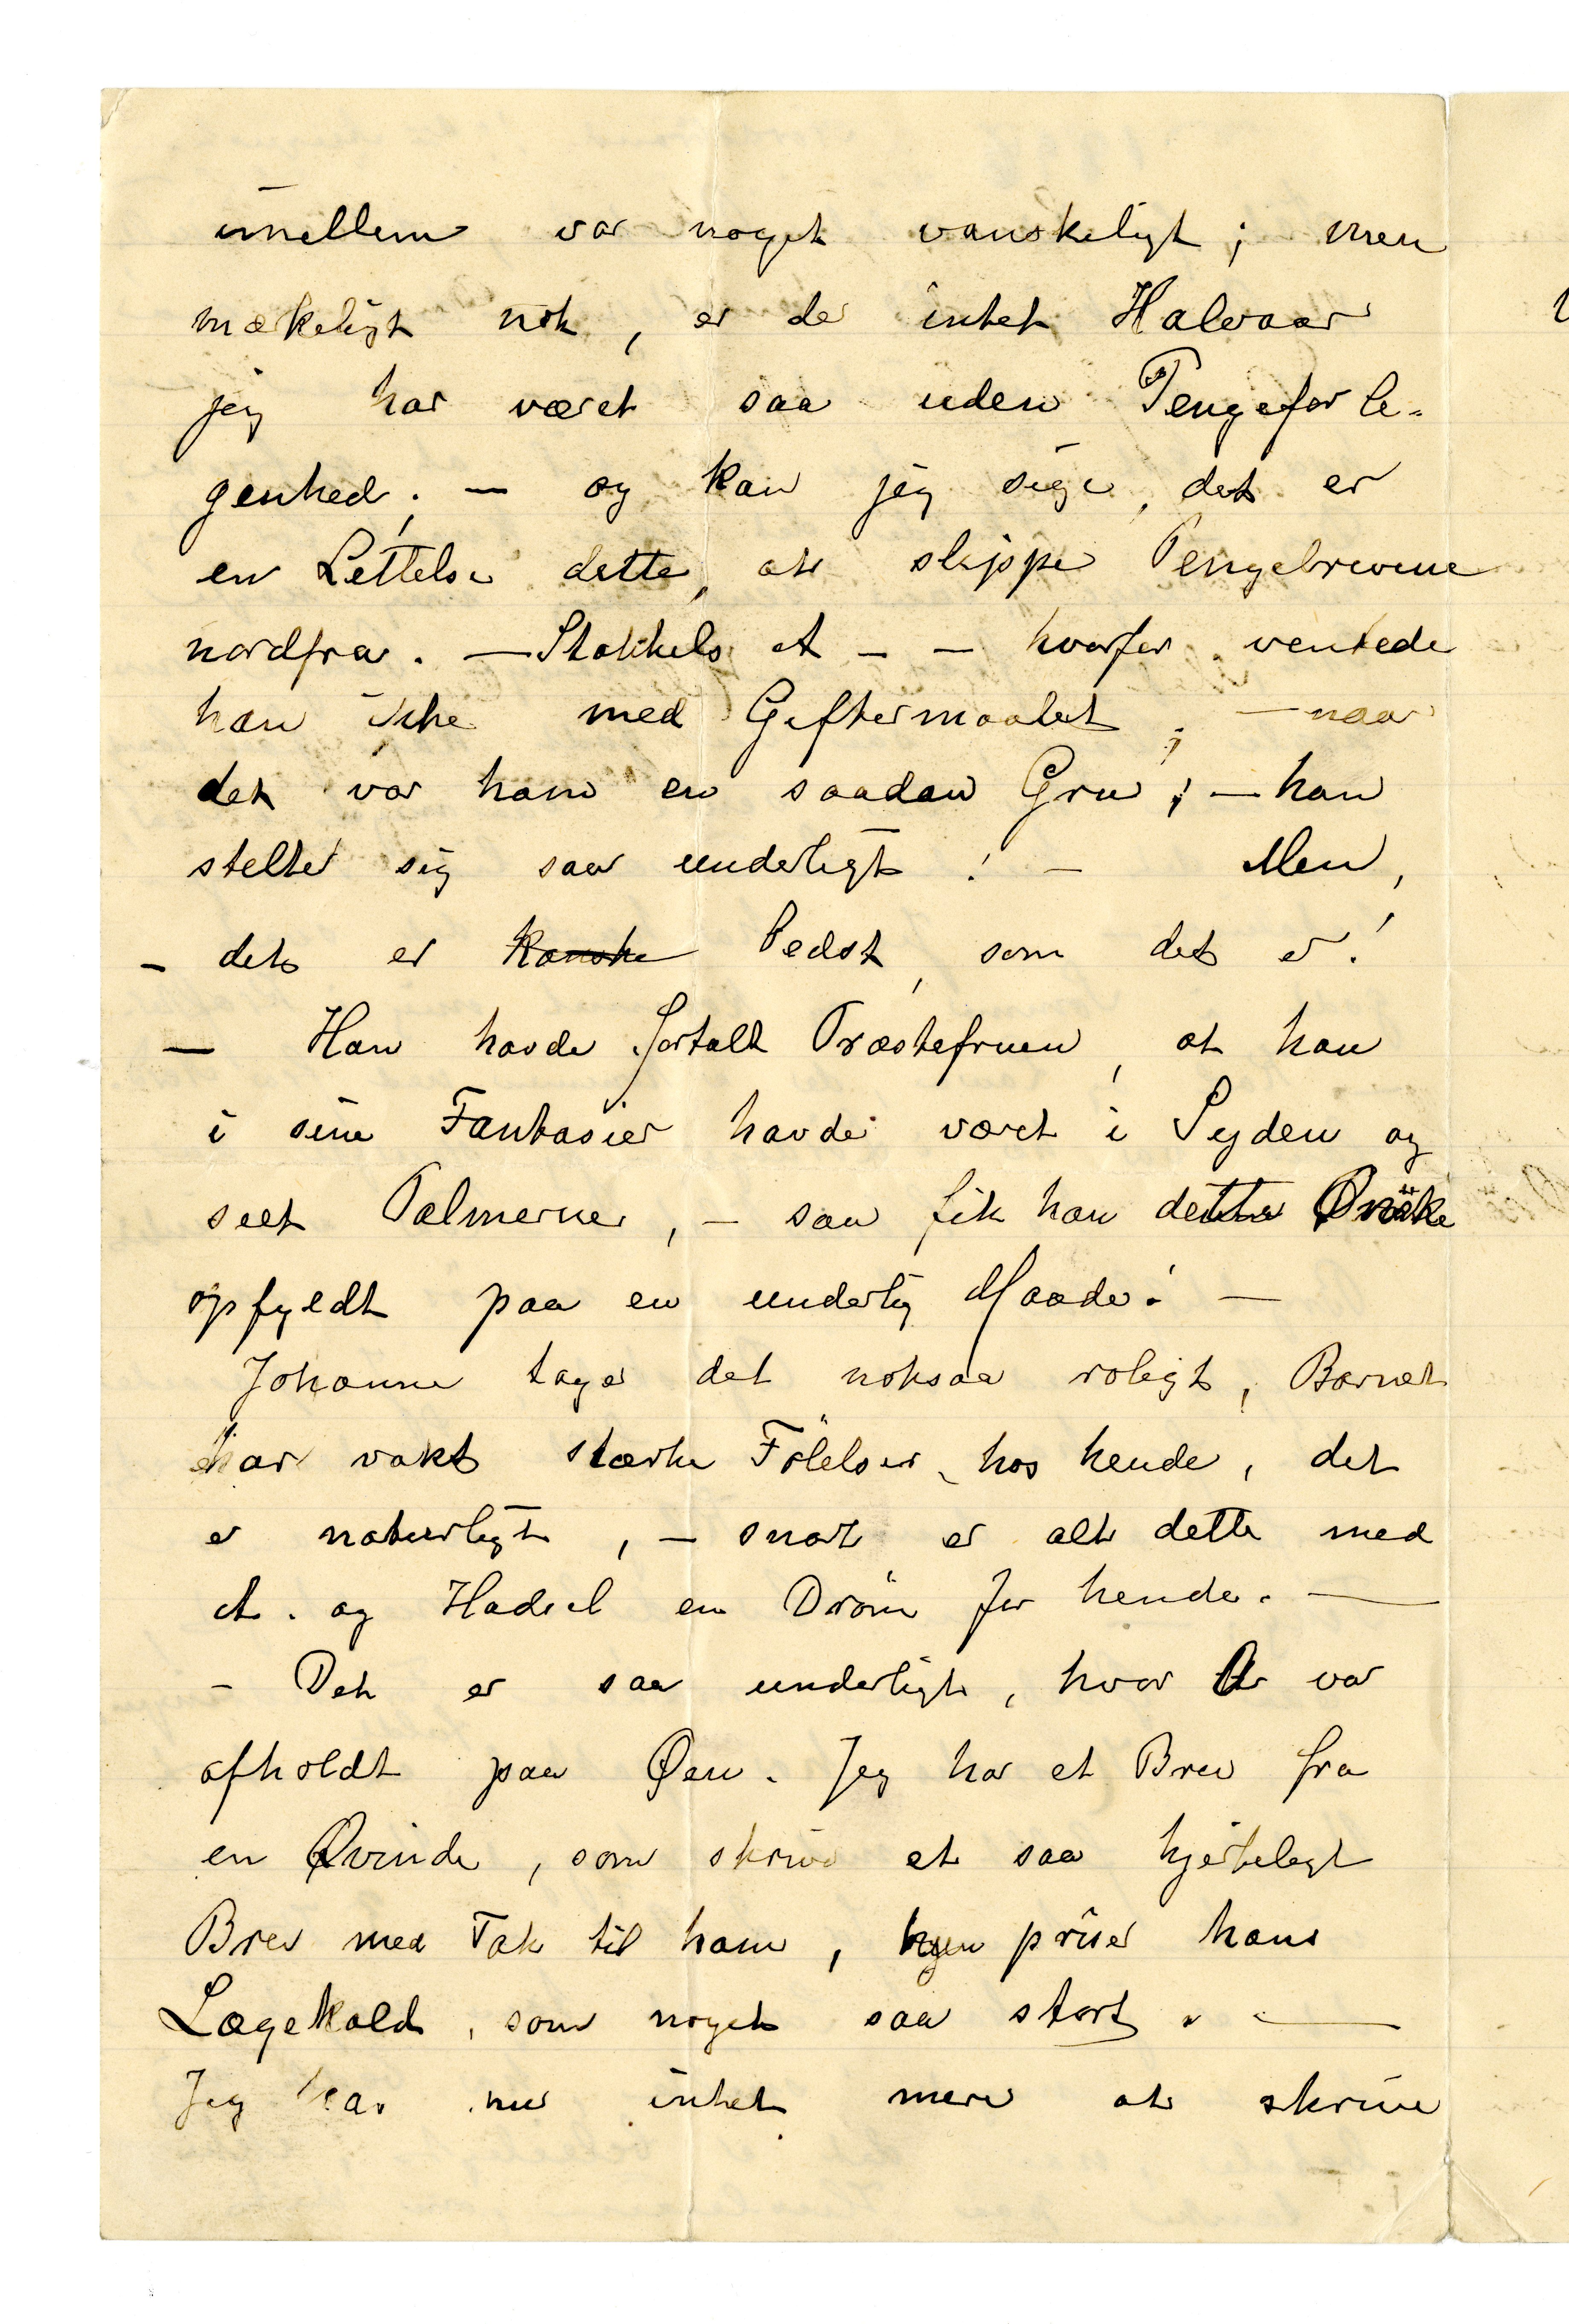 imellem var noget vanskeligt; men
mækeligt nok, er der intet Halvaar
jeg har været saa uden Pengeforle-
genhed; — og kan jeg sige, det er
en Lettelse dette, at slippe Pengebrevene
nordfra. — Stakkels A — — hvorfor ventede
han ikke med Giftermaalet; — naar
det var ham en saadan Gru; — han
stellte sig saa underligt! — Men,
- det er Kanske bedst, som det er!
— Han havde fortalt Præstefruen, at han
i sine Fantasier havde været i Syden og
seet Palmerne, — saa fik han dette Ønske
opfyldt paa en underlig Maade! —
Johanne tager det noksaa roligt, Barnet
har vakt stærke Følelser hos hende, det
er naturligt, — snart er alt dette med
A. og Hadsel en Drøm for hende. —
- Det er saa underligt, hvor A var
afholdt paa Øen. Jeg har et Brev fra
en Qvinde, som skrive et saa hjerteligt
Brev med Tak til ham, priser hans
Lægekald, som noget saa stort. —
Jeg har nu intet mere at skrive